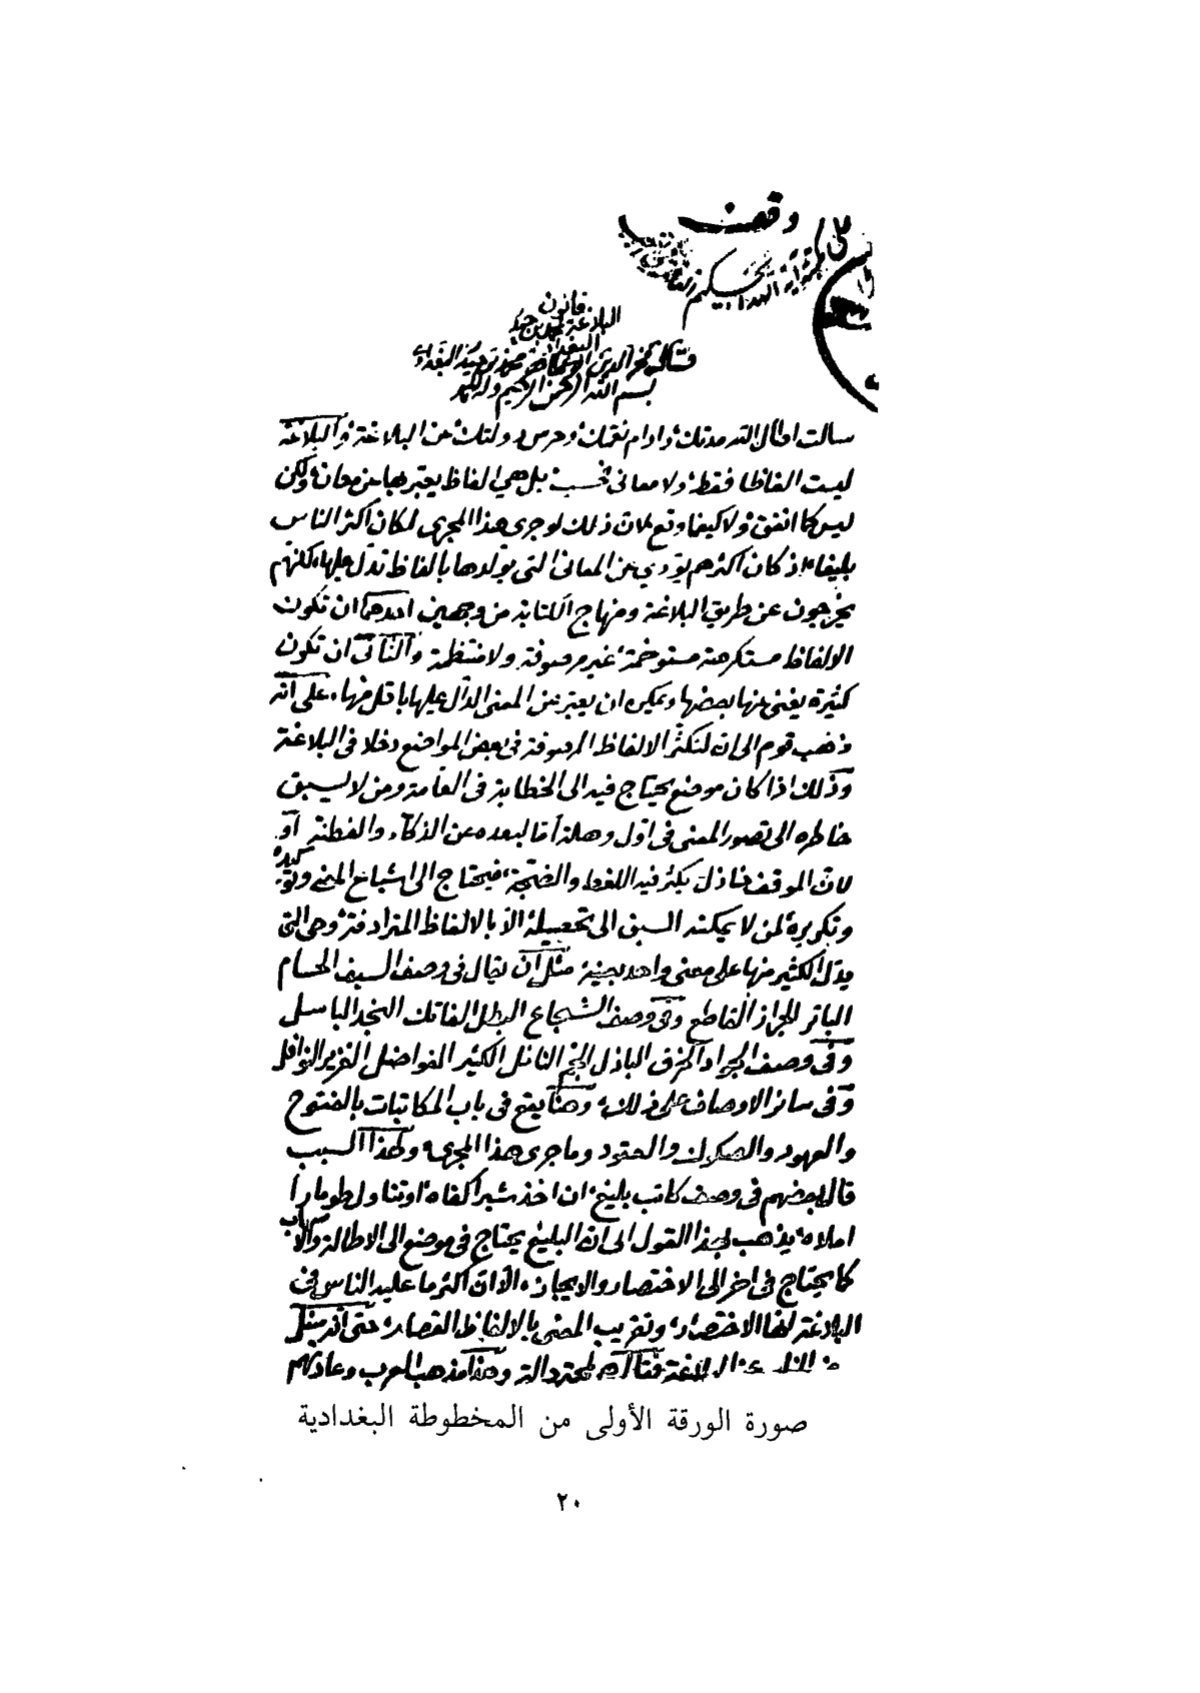 وقف
على
قانون
البلاغة لمحمد بن حيدر
البغدادي
قال فخر الدين ابو طاهر محمد بن حيدر البغدادي
بسم الله الرحمن الرحيم
سالت اطال الله مدتك وادام نعمتك وحرس دولتك عن البلاغة والبلاغة
ليست الفاظا فقط ولا معاني فحسب بل هي الفاظ يعبر بها عن معان ولكن
ليس كما اتفق ولا كيفما وقع لان ذلك لو جرى هذا المجرى لكان اكثر الناس
بليغا اذ كان اكثرهم يؤدي عن المعاني التي يولدها بالفاظ تدل عليها لكنهم
يخرجون عن طريق البلاغة ومنهاج الكتابة من وجهين احدهما ان تكون
الالفاظ مستكرهة مستوخمة غير مرصوفة ولا منتظمة والثاني ان تكون
كثيرة يغني عنها بعضها ويمكن ان يعبر عن المعنى الدال عليها باقل منها على انه
ذهب قوم الى ان لتكثر الالفاظ المرصوفة في بعض المواضع دخلا في البلاغة
وذلك اذا كان موضع يحتاج فيه الى الخطابة في العامة ومن لا يسبق
خاطره الى تصور المعنى في اول وهلة اما لبعده عن الذكاء والفطنة او
لان الموقف يكثر فيه اللغط والضجة فيحتاج الى اشباع المعنى وتوكيده
وتكريره لمن لا يمكنه السبق الى تحصيله الا بالالفاظ المترادفة وهي التي
يدل الكثير منها على معنى واحد بعينه مثل ان يقال في وصف السيف الحسام
الباتر الجراز القاطع وفي وصف الشجاع البطل الفاتك النجد الباسل
وفي وصف الجواد الخرق الباذل الجم النائل الكثير الفواضل الغزير النوافل
وفي سائر الاوصاف على ذلك وهذا يقع في باب المكاتبات بالفتوح
والعهود والصكوك والعقود وما جرى هذا المجرى ولهذا السبب
قال بعضهم في وصف كاتب بليغ ان اخذ شبرا كفاه او تناول طومارا
املاه يذهب بهذا القول الى ان البليغ يحتاج في موضع الى الاطالة والاسهاب
كما يحتاج في اخر الى الاختصار والايجاز الا ان اكثر ما عليه الناس في
البلاغة الاختصار وتقريب المعنى بالالفاظ القصار حتى انه سئل
البلاغة فقال لمحة دالة وهذا مذهب العرب وعادتهم
صورة الورقة الأولى من المخطوطة البغدادية
٢٠